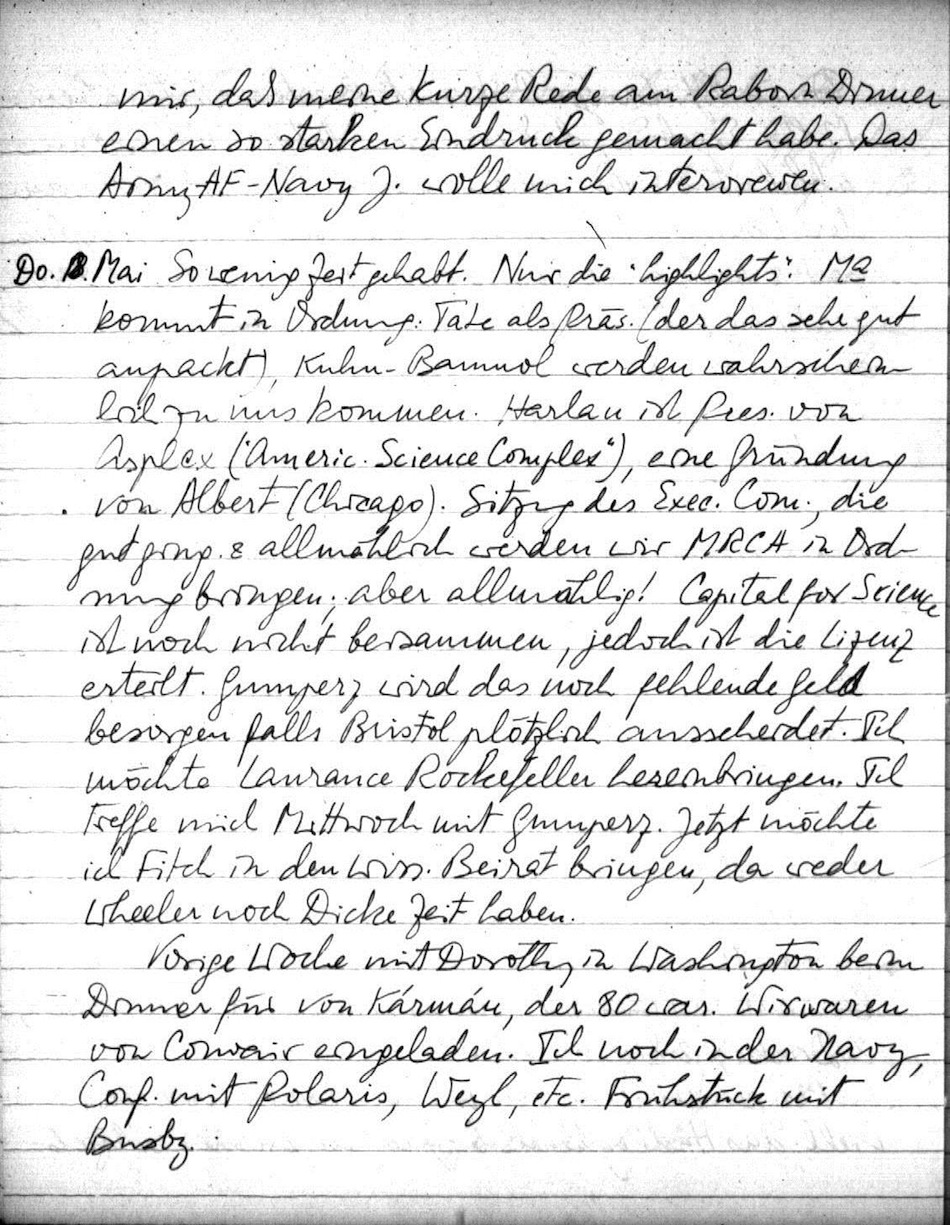 mir, daß meine kurze Rede am Raborn Dinner
einen so starken Eindruck gemacht habe. Das
Army AF-Navy J. wolle mich interviewen.
Do. Mai So wenig Zeit gehabt. Nur die "highlights": Ma
kommt in Ordnung: Tate als Präs. (der das sehr gut
anpackt), Kuhn-Baumol werden wahrschein
lich zu uns kommen. Harlan ist Pres. von
Asplex ("Americ. Science Complex"), eine Gründung
von Albert (Chicago). Sitzg des Exec. Com., die
gut ging. & allmählich werden wir MRCA in Ord-
nung bringen; aber allmählig! Capital for Science
ist noch nicht beisammen, jedoch ist die Lizenz
erteilt. Gumperz wird das noch fehlende Geld
besorgen falls Bristol plötzlich ausscheidet. Ich
möchte Laurance Rockefeller hereinbringen. Ich
treffe mich Mittwoch mit Gumperz. Jetzt möchte
ich Fitch in den wiss. Beirat bringen, da weder
Wheeler noch Dicke Zeit haben.
Vorige Woche mit Dorothy in Washington beim
Dinner für von Kármán, der 80 war. Wir waren
von Convair eingeladen. Ich noch in der Navy,
Conf. mit Polaris, Weyl, etc. Frühstück mit
Busby.